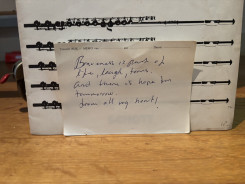 is part of
life, laugh, tears.
And there is hope for
tomorrow.
from all my heart!